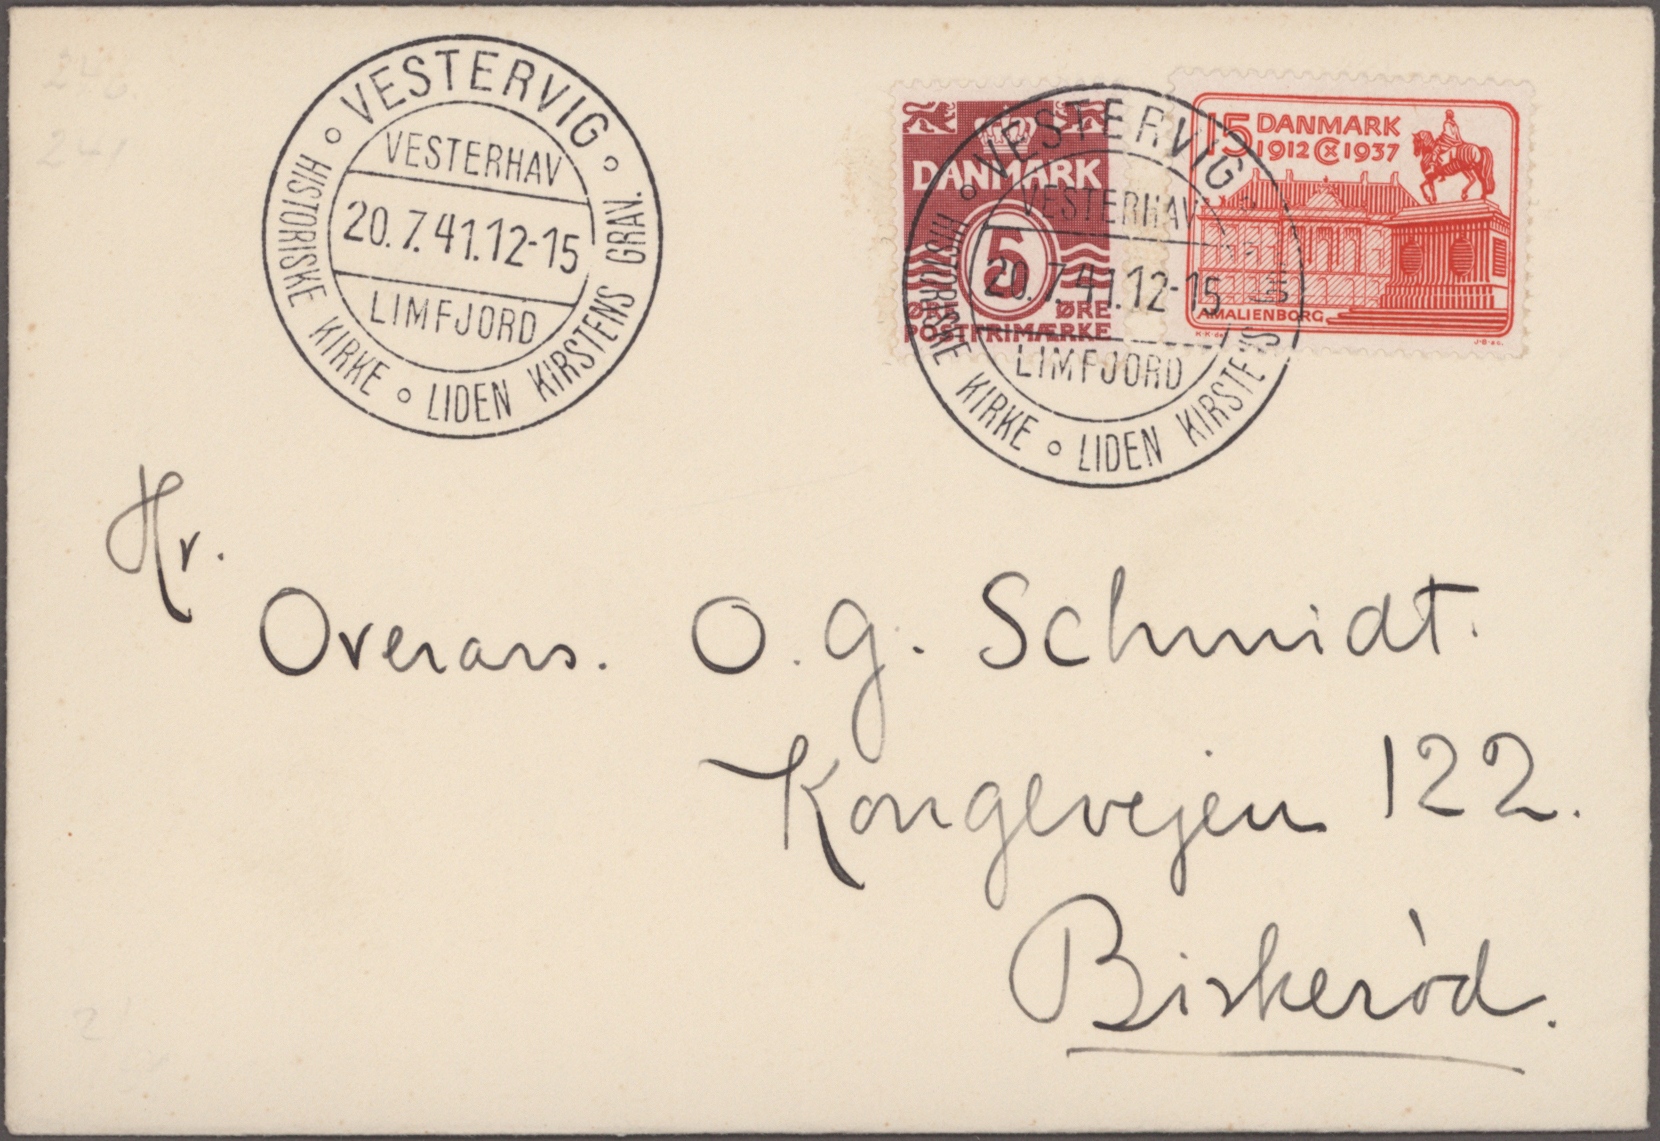 VESTERVIG
VESTERHAV
20.7.41.12-15
LIMFJORD
HISTORISKE KIRKE o LIDEN KIRSTENS GRAV.
DANMARK
5
ØRE ØRE
POSTFRIMÆRKE
15 DANMARK
1912 CX 1937
AMALIENBORG
VESTERVIG
VESTERHAV
20.7.41.12-15
LIMFJORD
HISTORISKE KIRKE o LIDEN KIRSTENS
Hr.
Overars. O. G. Schmidt.
Kongevejen 122.
Birkeröd.